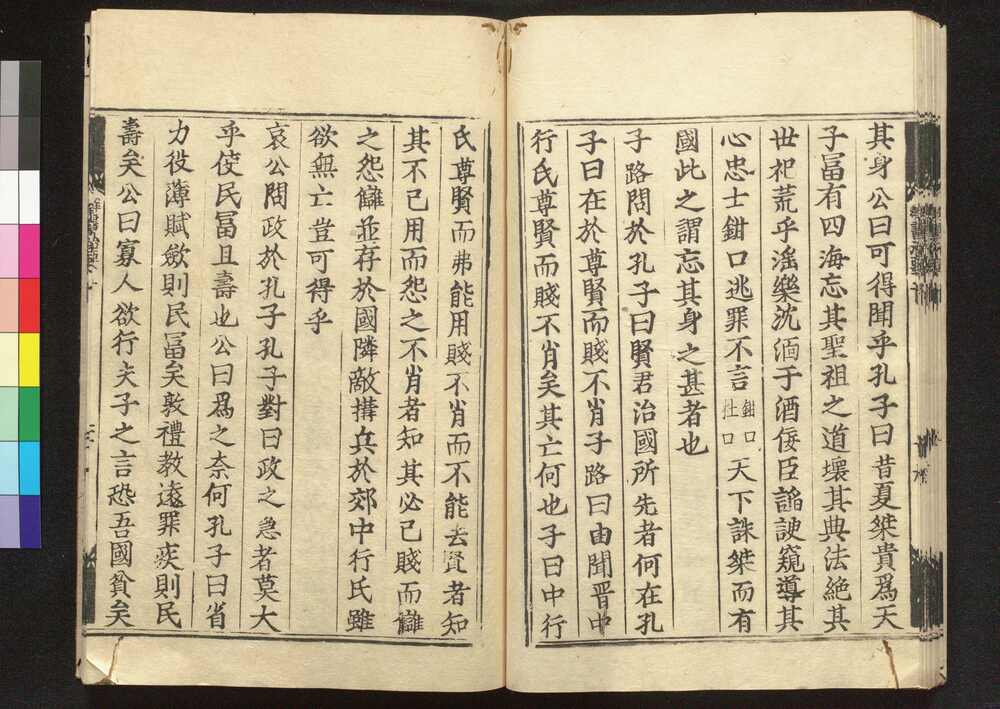 其身公曰可得聞乎孔子曰昔夏桀貴爲天
子冨有四海忘其聖祖之道壞其典法絶其
世祀荒乎滛樂沈湎于酒佞臣謟諛窺導其
心忠士鉗口逃罪不言鉗口杜口天下誅桀而有
國此之謂忘其身之甚者也
子路問於孔子曰賢君治國所先者何在孔
子曰在於尊賢而賤不肖子路曰由聞晋中
行氏尊賢而賤不肖矣其亡何也子曰中行
氏尊賢而弗能用賤不肖而不能去賢者知
其不己用而怨之不肖者知其必己賤而讎
之怨讎並存於國隣敵搆兵於郊中行氏雖
欲無亡豈可得乎
哀公問政於孔子孔子對曰政之急者莫大
乎使民冨且壽也公曰爲之奈何孔子曰省
力役薄賦斂則民冨矣敦禮教遠罪疾則民
壽矣公曰寡人欲行夫子之言恐吾國貧矣